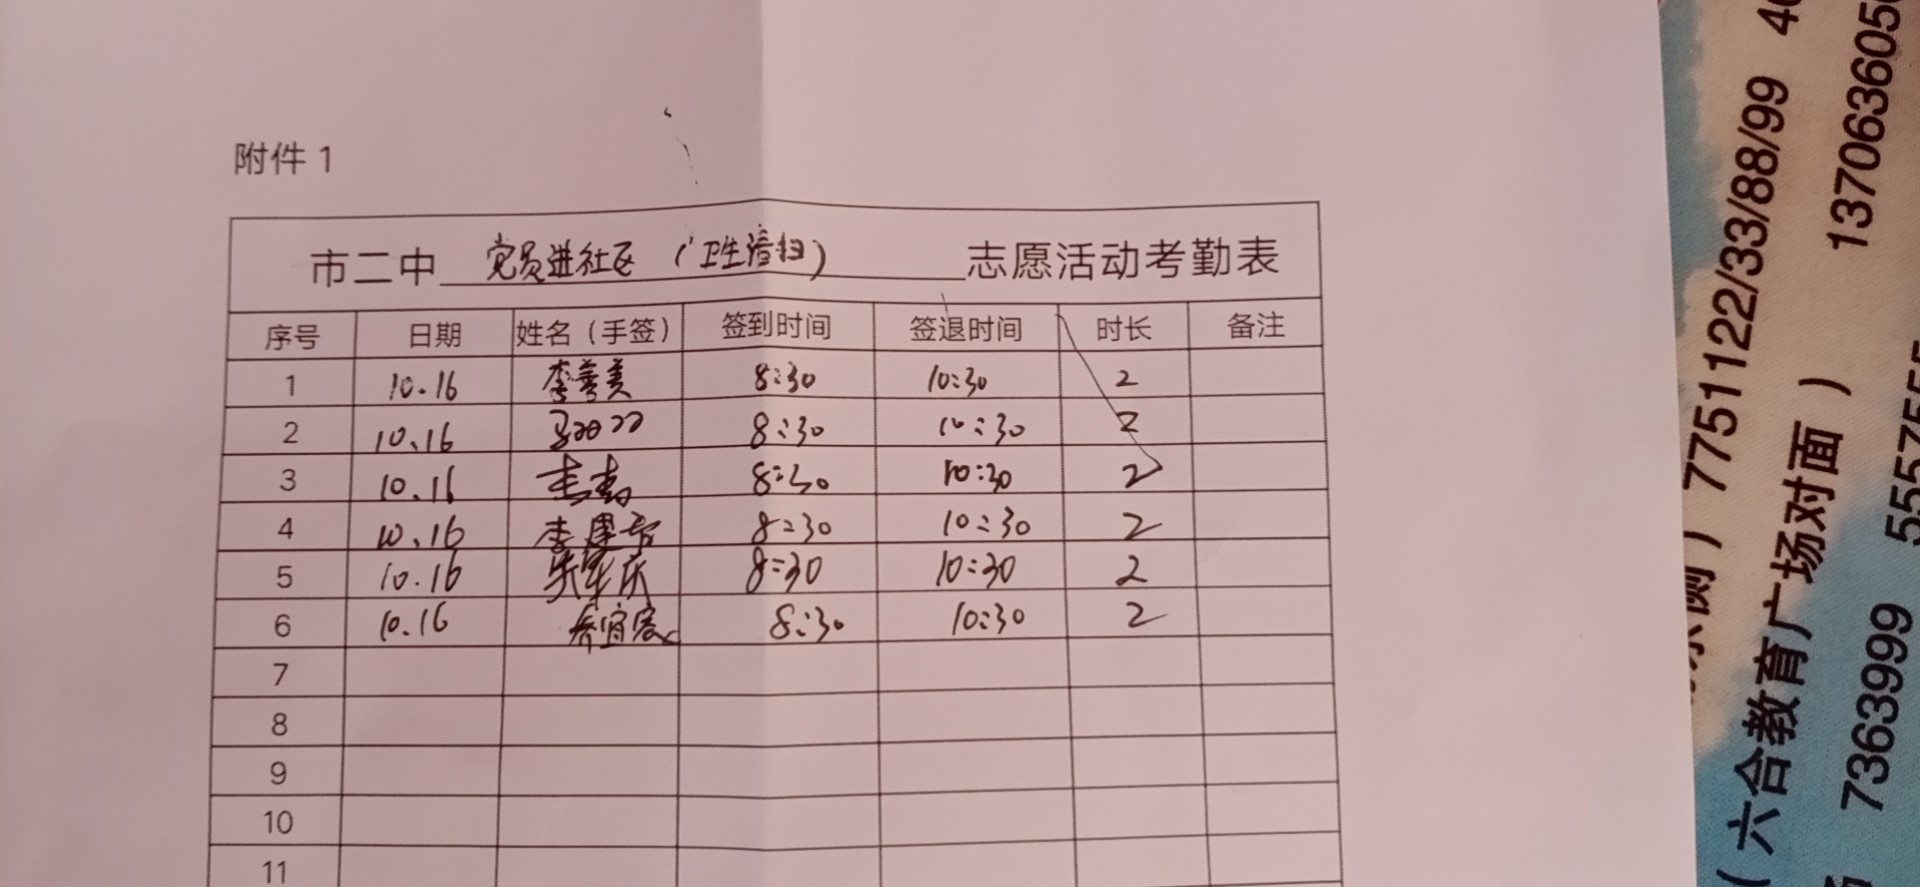 附件 1
市二中 党员进社区（卫生清扫） 志愿活动考勤表
序号 日期 姓名（手签） 签到时间 签退时间 时长 备注
1 10.16 李善美 8:30 10:30 2
2 10.16 8:30 10:30 2
3 10.16 8:30 10:30 2
4 10.16 8:30 10:30 2
5 10.16 8:30 10:30 2
6 10.16 8:30 10:30 2
7
8
9
10
11
7751122/33/88/99
1370636050
（六合教育广场对面）
7363999